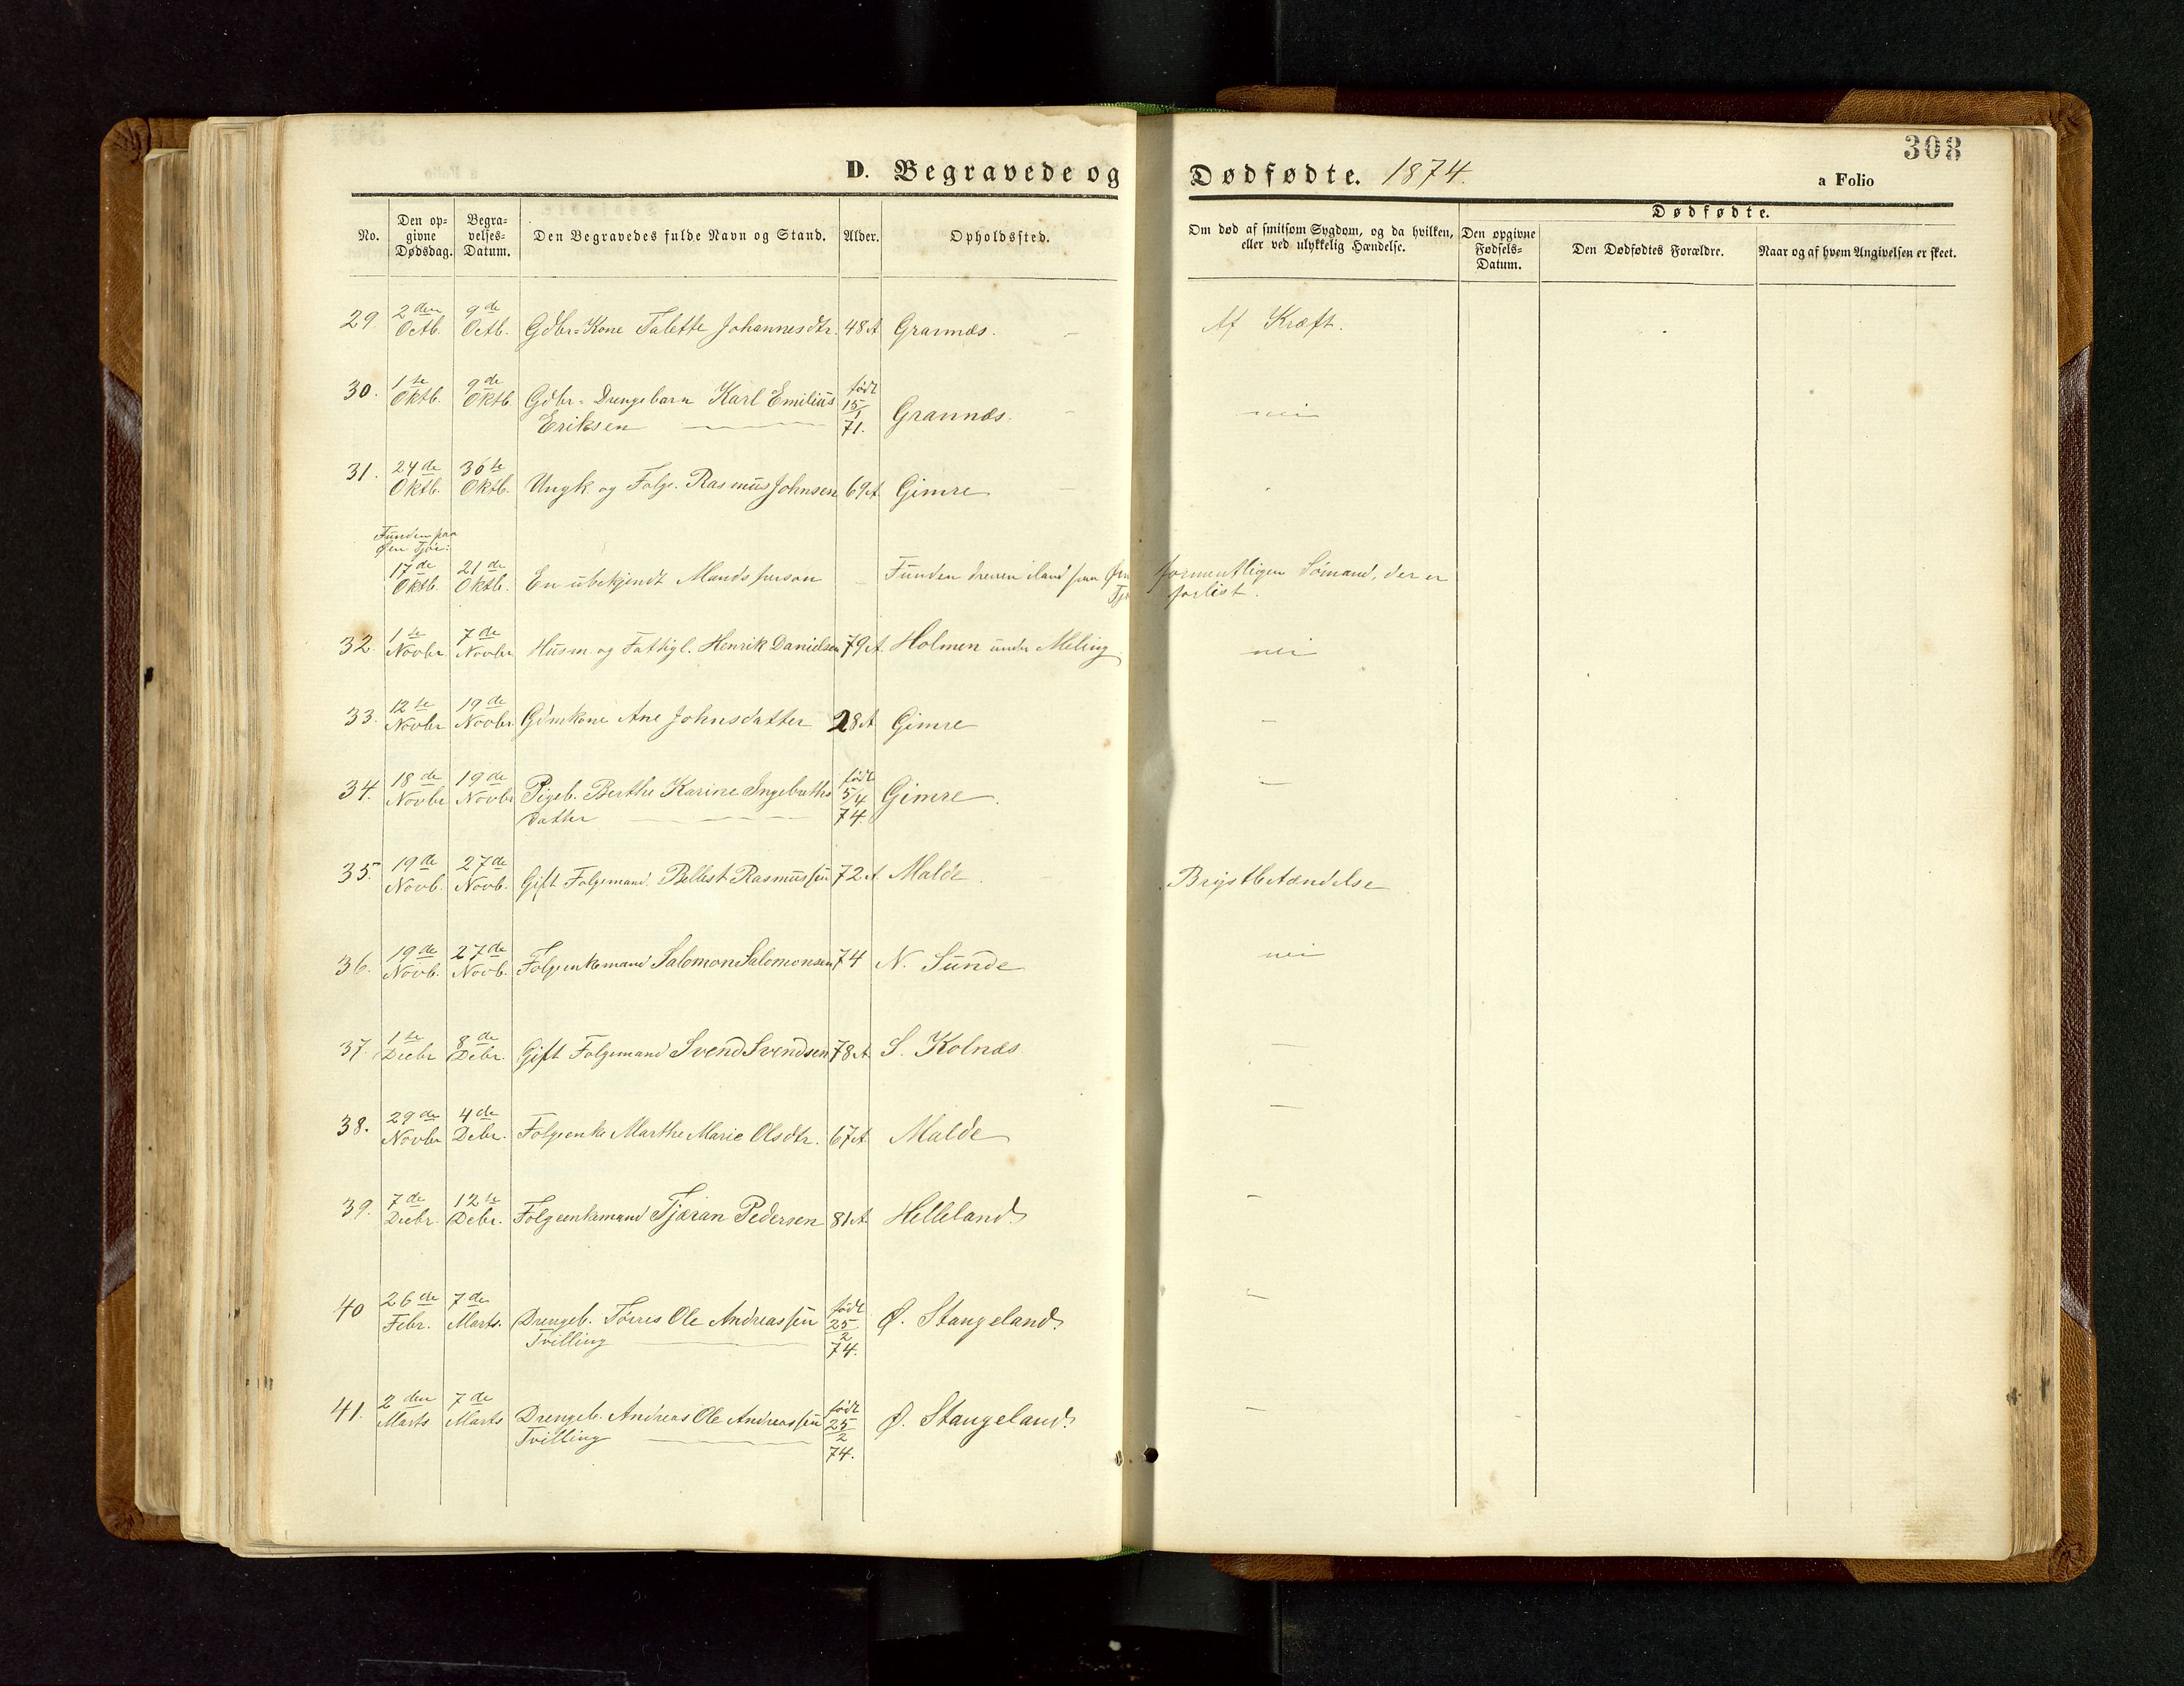 308
D. Begravede og Dødfødte. 1874.
a Folio
No.
Den opgivne Dødsdag.
Begravelses-Datum.
Den Begravedes fulde Navn og Stand.
Alder.
Opholdssted.
Om død af smitsom Sygdom, og da hvilken, eller ved ulykkelig Hændelse.
Dødfødte.
Den opgivne Fødsels-Datum.
Den Dødfødtes Forældre.
Naar og af hvem Angivelsen er skeet.
29. 2den Octb. 9de Octb. Gdbr=Kone Talette Johannesdtr. 48 A Grannæs. — Af Kræft.
30. 1ste Oktb. 9de Oktb. Gdbr= Drengebarn Karl Emilius Eriksen født 15/1 71. Grannæs. — nei
31. 24de Oktb. 30te Oktb. Ungk. og Folge. Rasmus Johnsen 69 A Gimre —
Funden paa Øen Tjør:
17de Oktb. 21de Oktb. En ubekjendt Mandsperson — Funden dreven iland paa Øen formentligen Sömand, der er forlist.
32. 1ste Novbr 7de Novbr Husm. og Fattigl. Henrik Danielsen 79 A. Holmen under Meling nei
33. 12te Novbr 19de Novbr Gdmkone Ane Johnsdatter 28 A Gimre —
34. 18de Novbr 19de Novbr Pigeb. Berthe Karine Ingebreths datter født 5/4 74. Gimre. —
35. 19de Novb. 27de Novb. Gift Folgemand. Pellest Rasmussen 72 A Malde. Brystbetændelse
36. 19de Novb. 27de Novb. Folgeenkemand Salomon Salomonsen 74 N. Sunde nei
37. 1ste Decbr 8de Debr. Gift Folgemand Svend Svendsen 78 A S. Kolnæs. —
38. 29de Novbr 4de Debr. Folgeenke Marthe Marie Olsdtr. 67 A Malde —
39. 7de Decbr. 12te Debr. Folgeenkemand Tjæran Pedersen 81 A Helleland —
40 26de Febr. 7de Marts. Drengeb. Törres Ole Andreassen Tvilling født 25/2 74. Ø. Stangeland. —
41. 2den Marts 7de Marts Drengeb. Andreas Ole Andreassen Tvilling født 25/2 74. Ø. Stangeland. —